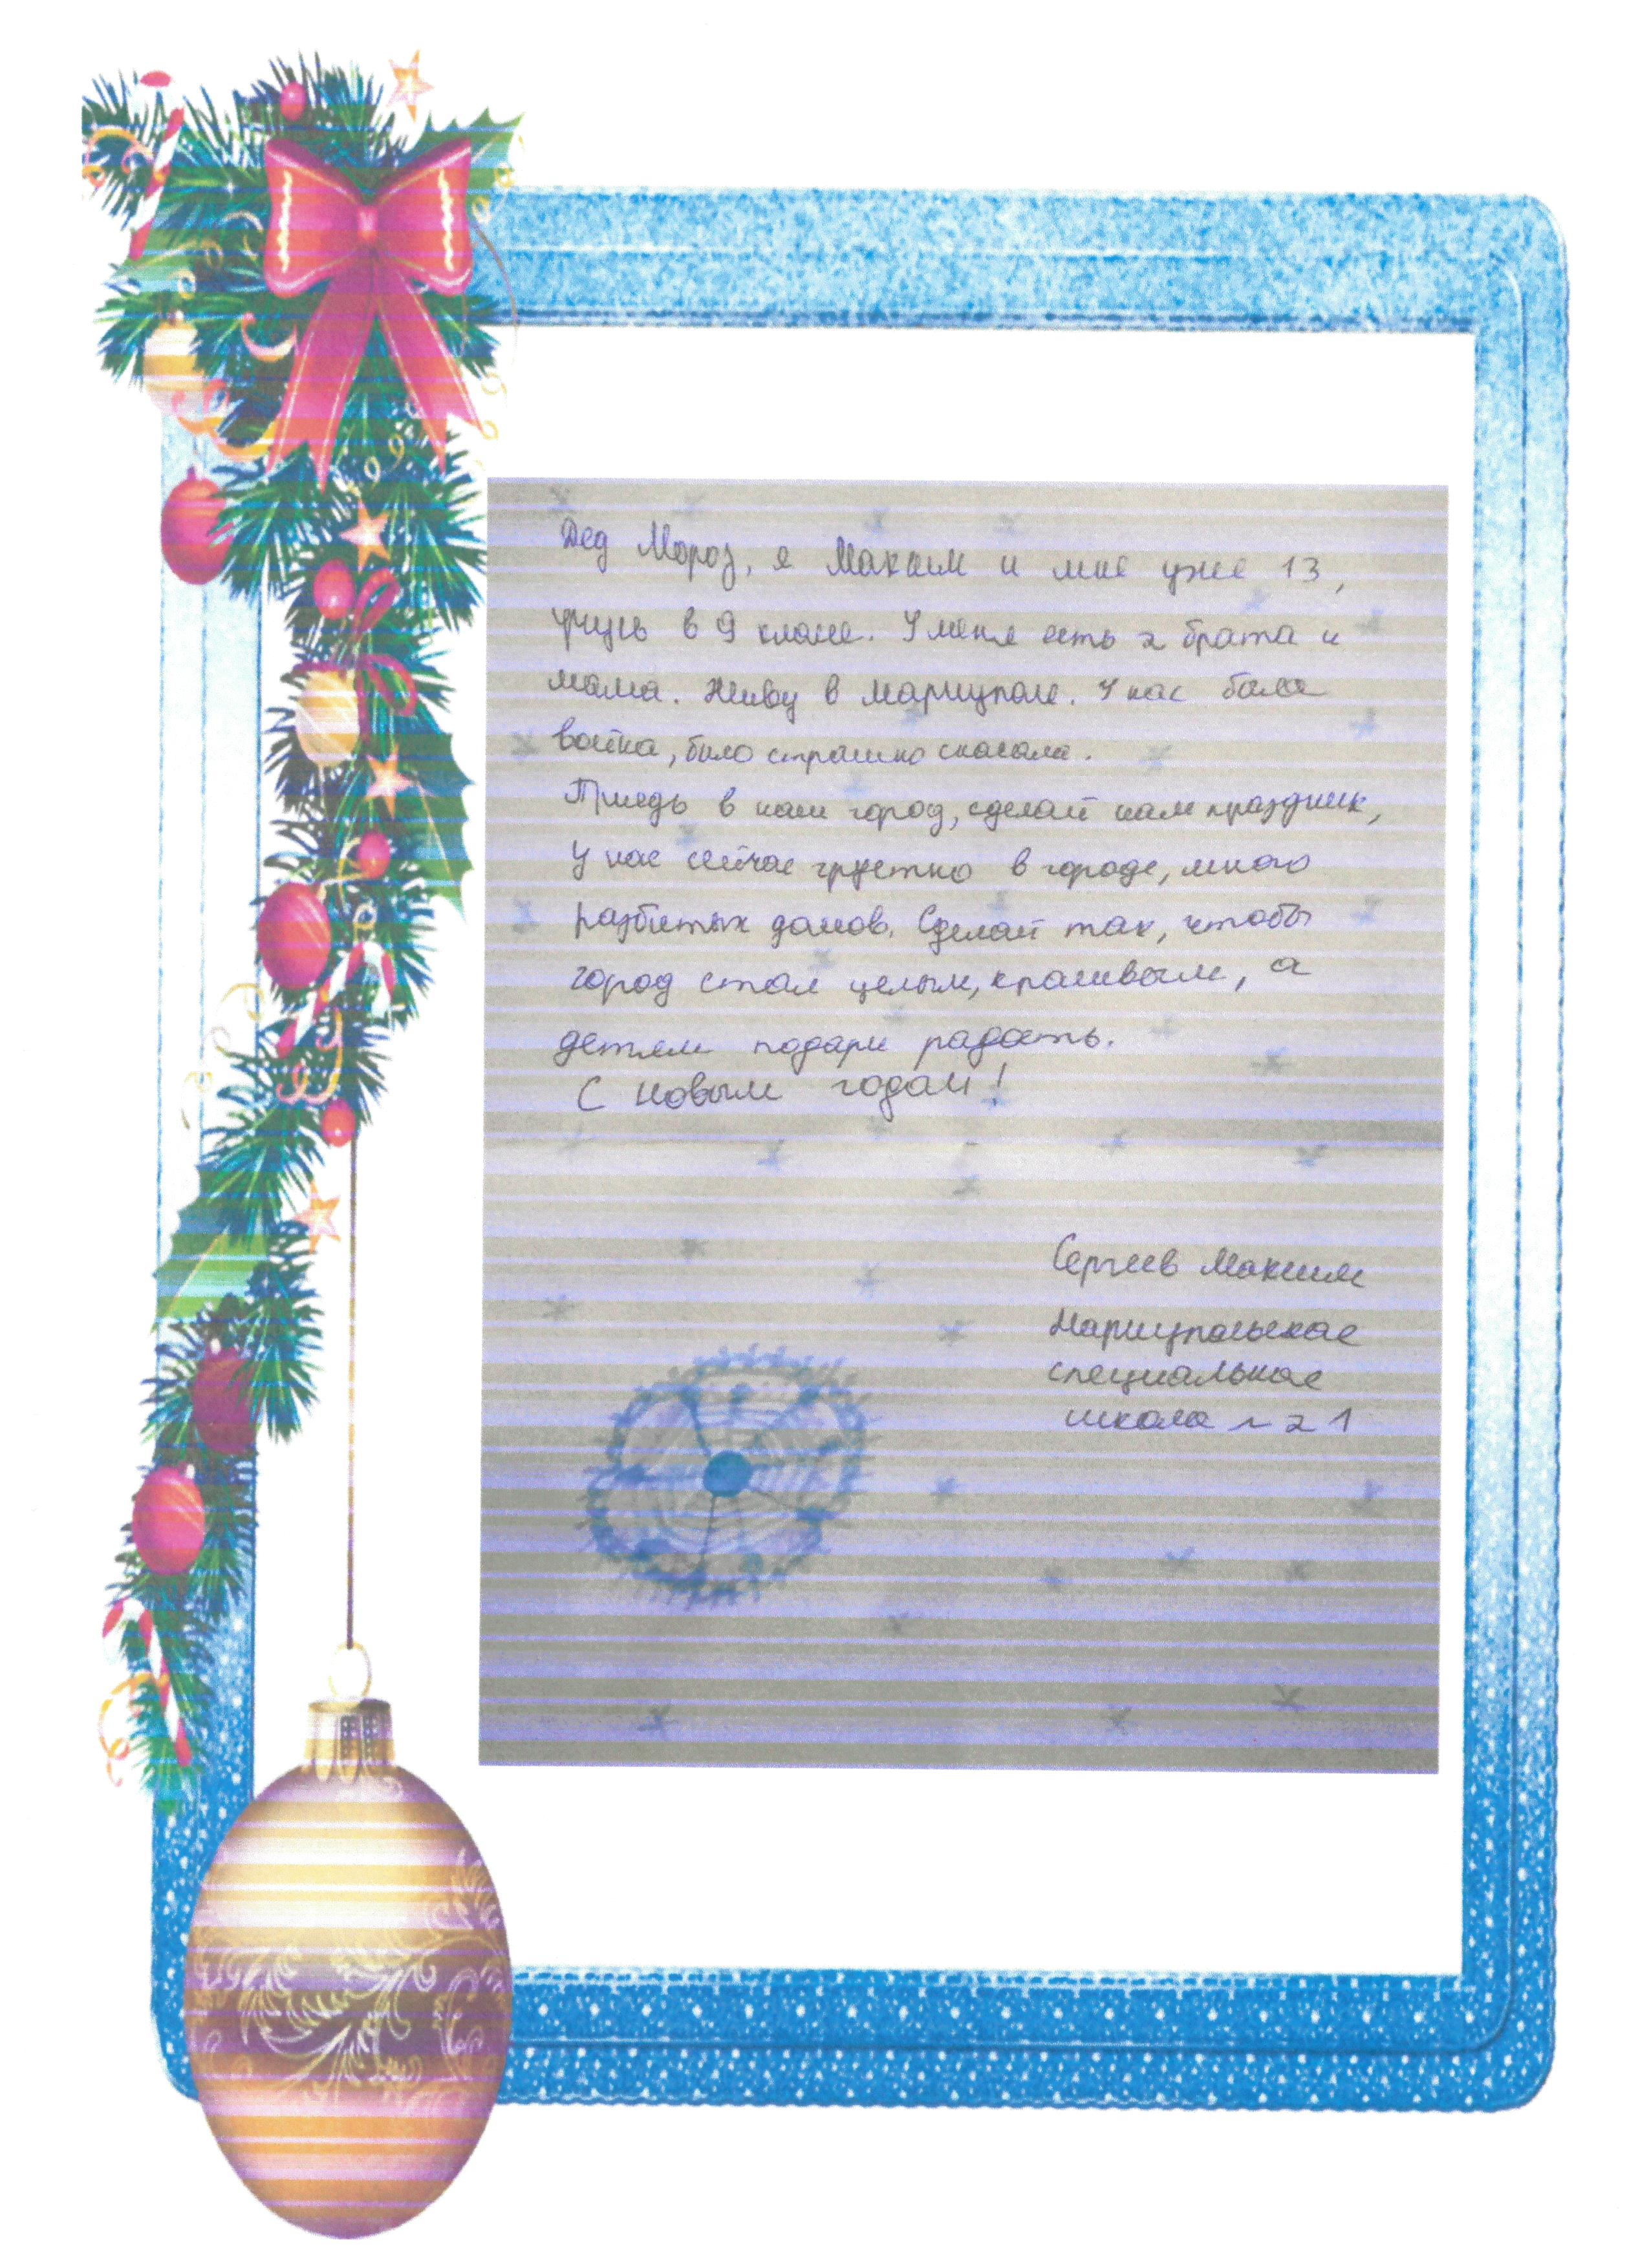 Дед Мороз, я Максим и мне уже 13,
учусь в 9 класе. У меня есть 2 брата и
мама. Живу в Мариуполе. У нас была
война, было страшно сначала.
в наш город, сделай нам праздник,
У нас сейчас грустно в городе, много
разбитых домов. Сделай так, чтобы
город стал целым, красивым, а
детям подари радость.
С новым годом!
Сергеев Максим
Мариупольская
специальная
школа № 21